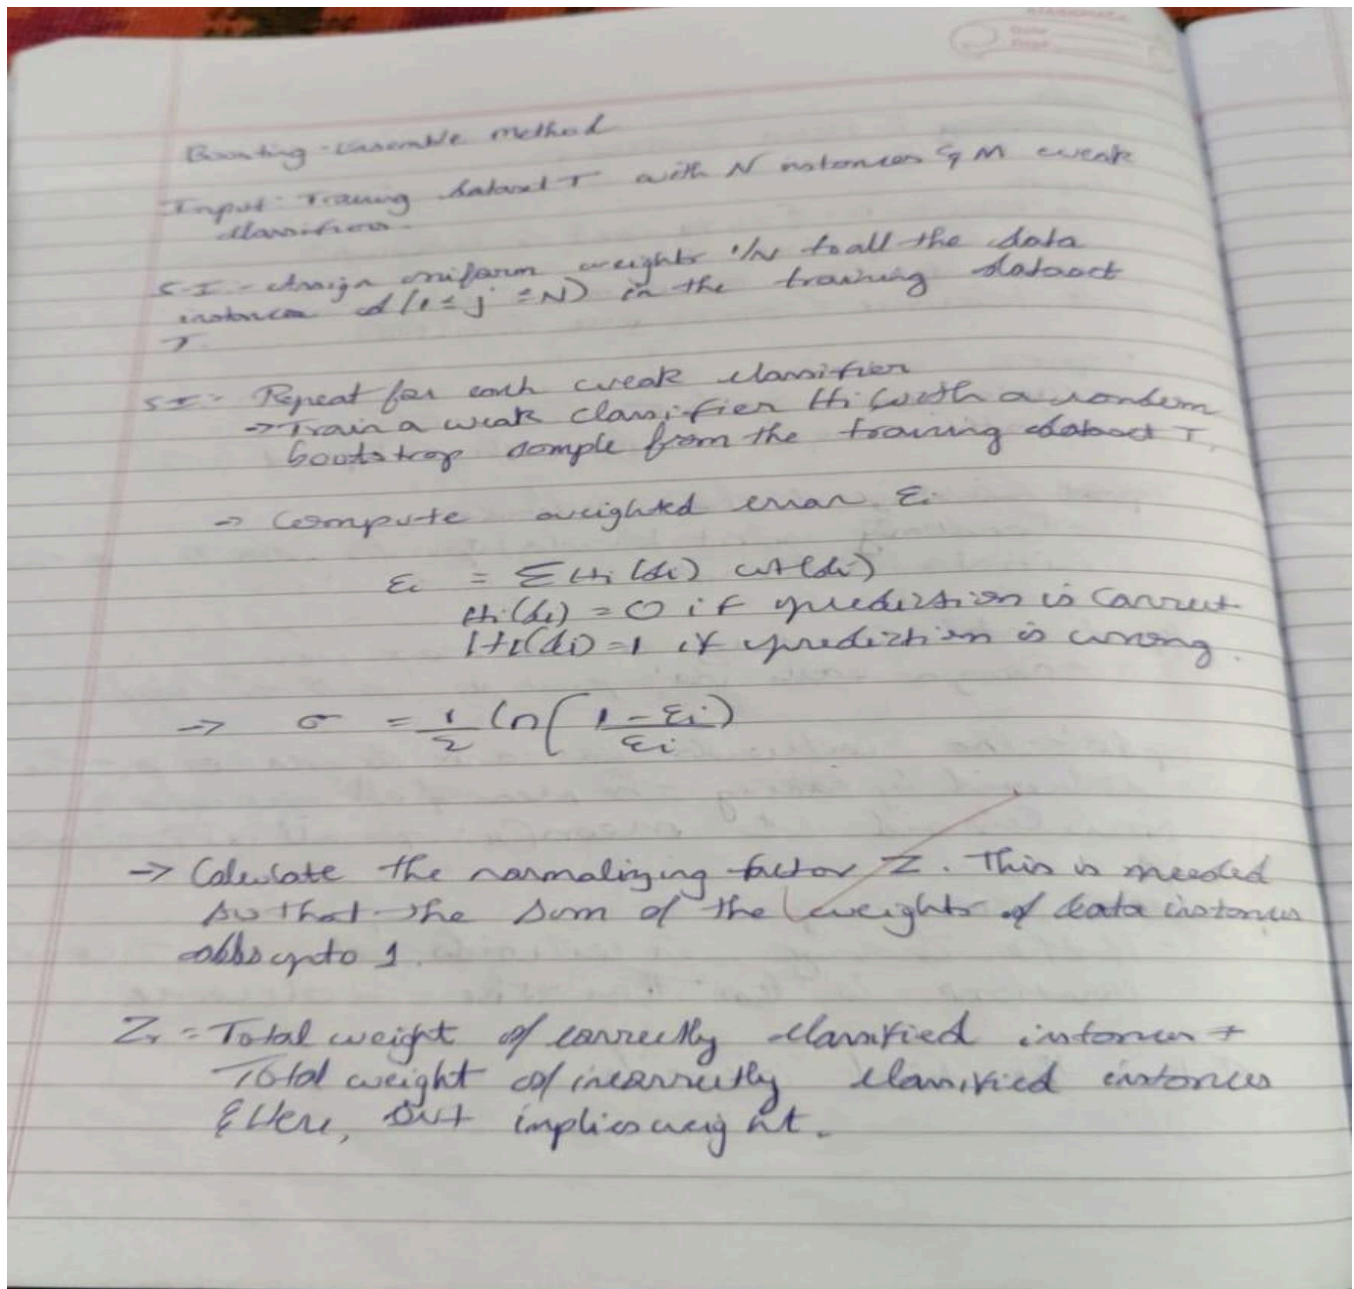 Boosting - Ensemble method
Input: Training dataset T with N instances & M weak
classifiers.
S-I - Assign uniform weights 1/N to all the data
instances d(1 ≤ j ≤ N) in the training dataset
T.
S-I - Repeat for each weak classifier
→ Train a weak classifier Hi with a random
bootstrap sample from the training dataset T.
→ Compute weighted error εi
εi = Σ Hi(di) wt(di)
Hi(di) = 0 if prediction is correct
Hi(di) = 1 if prediction is wrong.
→ σ = 1/2 ln(1 - εi / εi)
→ Calculate the normalizing factor Z. This is needed
so that the sum of the weights of data instances
adds upto 1.
Z = Total weight of correctly classified instances +
Total weight of incorrectly classified instances
Here, implies weight.